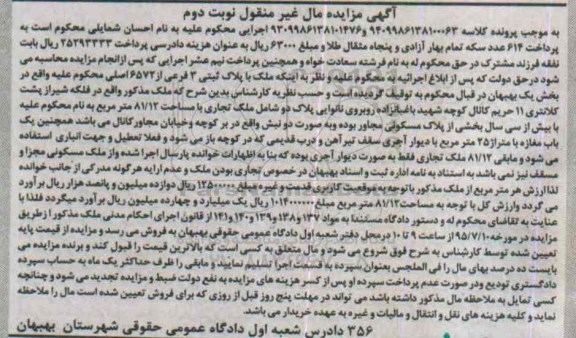 آگهی مزایده مال غیر منقول نوبت دوم
به موجب پرونده کلاسه 9409986138100063 و 9309986138101476 اجرایی محکوم علیه به نام احسان شمایلی محکوم است به
پرداخت 614 عدد سکه تمام بهار آزادی و پنجاه مثقال طلا و مبلغ 63000 ریال به عنوان هزینه دادرسی پرداخت 25293333 ریال بابت
نفقه فرزند مشترک در حق محکوم له به نام فرشته سعادت خواه و همچنین پرداخت نیم عشر اجرایی که پس از انجام مزایده محاسبه می
شود در حق دولت که پس از ابلاغ اجرائیه به محکوم علیه و نظر به اینکه ملک با پلاک ثبتی 3 فرعی از 6572 اصلی محکوم علیه واقع در
بخش یک بهبهان در قبال محکوم به توقیف گردیده است و حسب نظریه کارشناس بدین شرح که ملک مذکور واقع در فلکه شیراز پشت
کلانتری 11 حریم کانال کوچه شهید باغبانزاده روبروی نانوایی پلاک دو شامل ملک تجاری با مساحت 81/12 متر مربع به نام محکوم علیه
با بیش از سی سال بخشی از پلاک مسکونی مجاور بوده و به صورت دو نبش واقع در بر کوچه و خیابان مجاور کانال می باشد همچنین یک
باب مغازه با متراژ 25 متر مربع با دیوار آجری سقف تیر آهن و درب قدیمی که در کوچه باز می شود و فعلا تعطیل و جهت انباری استفاده
می شود و مابقی 81/12 ملک تجاری فقط به صورت دیوار آجری بوده که بنا به اظهارات خوانده پارسال اجرا شده و از ملک مسکونی مجزا و
مسقف نیز نمی باشد به استناد به نامه اداره ثبت و اسناد بهبهان در خصوص تجاری بودن ملک و عدم ارایه هر گونه مدرکی از جانب خوانده
لذا ارزش هر متر مربع از ملک مذکور با توجه به موقعیت کاربری قدمت و غیره مبلغ ریال دوازده میلیون و پانصد هزار ریال برآورد
می گردد وارزش کل با توجه به مساحت 81/12 متر مربع مبلغ 1014000000 ریال یک میلیارد و چهارده میلیون ریال برآورد میگردد فلذا با
عنایت به تقاضای محکوم له و دستور دادگاه مستندا به مواد 137 و 138 و 139 و 140 و 141 از قانون اجرای احکام مدنی ملک مذکور از طریق
مزایده در مورخه 95/7/10 از ساعت 9 تا 10 در محل دفتر شعبه اول دادگاه عمومی حقوقی بهبهان به فروش می رسد و مزایده از قیمت پایه
تعیین شده توسط کارشناس به شرح فوق شروع می شود و مال متعلق به کسی است که بالاترین قیمت را قبول کند و برنده مزایده می
بایست ده درصد بهای مال را فی المجلس بعنوان سپرده به قسمت اجرا تسلیم نمایید و مابقی را ظرف حداکثر یک ماه به حساب سپرده
دادگستری تودیع ودر صورت عدم پرداخت سپرده او پس از کسر هزینه های مزایده به نفع دولت ضبط و مزایده تجدید می شود و چنانچه
کسی تمایل به ملاحظه مال مذکور داشته باشد می تواند در مهلت پنج روز قبل از روزی که برای فروش تعیین شده است مال را ملاحظه
نماید و کلیه هزینه های نقل و انتقال و مالیات و غیره به عهده خریدار می باشد.
356 دادرس شعبه اول دادگاه عمومی حقوقی شهرستان بهبهان